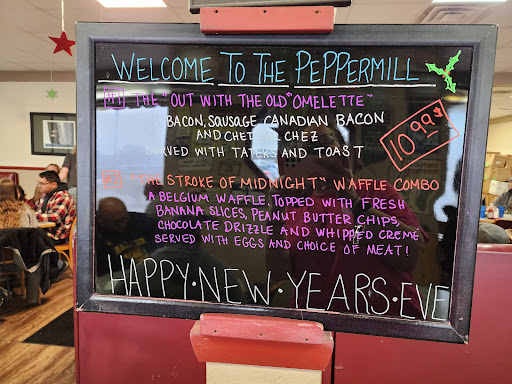 WELCOME TO THE PEPPERMILL
#1 THE "OUT WITH THE OLD" OMELETTE"
BACON, SAUSAGE, CANADIAN BACON
AND CHEDDAR CHEZ
SERVED WITH TATERS AND TOAST
10.99$
"THE STROKE OF MIDNIGHT" WAFFLE COMBO
A BELGIUM WAFFLE, TOPPED WITH FRESH
BANANA SLICES, PEANUT BUTTER CHIPS,
CHOCOLATE DRIZZLE AND WHIPPED CREME
SERVED WITH EGGS AND CHOICE OF MEAT!
HAPPY • NEW • YEARS • EVE